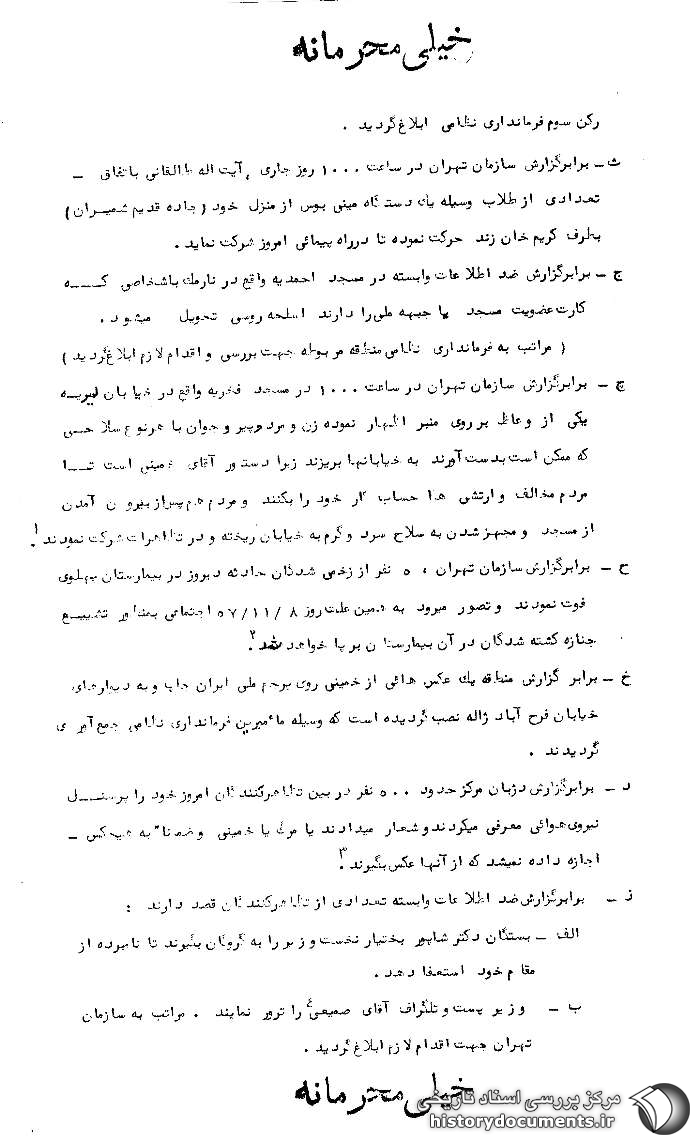 خیلی محرمانه
رکن سوم فرمانداری نظامی ابلاغ گردید .
ث ـ برابرگزارش سازمان تهران در ساعت ۱۰۰۰ روز جاری ، آیت اله طالقانی باتفاق ـ
تعدادی از طلاب وسیله یک دستگاه مینی بوس از منزل خود ( جاده قدیم شمیـران )
بطرف کریم خان زند حرکت نموده تا درراه پیمائی امروز شرکت نماید .
ج ـ برابرگزارش ضد اطلاعات وابسته در مسجد احمدیه واقع در نارمک باشخاصی کـــه
کارت عضویت مسجد یا جبهه ملی را دارند اسلحه روسی تحویل میشود .
( مراتب به فرمانداری نظامی منطقه مربوطه جهت بررسی و اقدام لازم ابلاغ گردید )
چ ـ برابرگزارش سازمان تهران در ساعت ۱۰۰۰ در مسجد فخریه واقع در خیابان امیریه
یکی از وعاظ بر روی منبر اظهار نموده زن و مردم پیر و جوان با هر نوع سلاحـی
که ممکن است بدست آورند به خیابانها بریزند زیرا دستور آقای خمینی است تـــا
مردم مخالف وارتشی ها حساب کار خود را بکنند و مردم هم پس از بیرون آمدن
از مسجد و مجهز شدن به سلاح سرد و گرم به خیابان ریخته و در تظاهرات شرکت نمودند ۱.
ح ـ برابرگزارش سازمان تهران ، ۵ نفر از زخمی شدگان حادثه دیروز در بیمارستان پهلوی
فوت نمودند و تصور میرود به همین علت روز ۵۷/۱۱/۸ اجتماعی بمنظور تشییـع
جنازه کشته شدگان در آن بیمارستان برپا خواهد شد ۲.
خ ـ برابر گزارش منطقه یک عکس هائی از خمینی روی پرچم ملی ایران چاپ و به دیوارهای
خیابان فرح آباد ژاله نصب گردیده است که وسیله مأمورین فرمانداری نظامی جمع آوری
گردیدند .
د ـ برابرگزارش دژبان مرکز حدود ۵۰۰ نفر در بین تظاهرکنندگان امروز خود را پرسنـــل
نیروی هوائی معرفی میکردند و شعار میدادند یا مرگ یا خمینی و ضمناً به هیچکس ـ
اجازه داده نمیشد که از آنها عکس بگیرند ۳.
ذ ـ برابرگزارش ضد اطلاعات وابسته تعدادی از تظاهرکنندگان قصد دارند :
الف ـ بستگان دکتر شاپور بختیار نخست وزیر را به گروگان بگیرند تا نامبرده از
مقام خود استعفا دهد .
ب ـ وزیر پست و تلگراف آقای صمیعی ۴ را ترور نمایند . مراتب به سازمان
تهران جهت اقدام لازم ابلاغ گردید .
خیلی محرمانه
مرکز بررسی اسناد تاریخی
historydocuments.ir